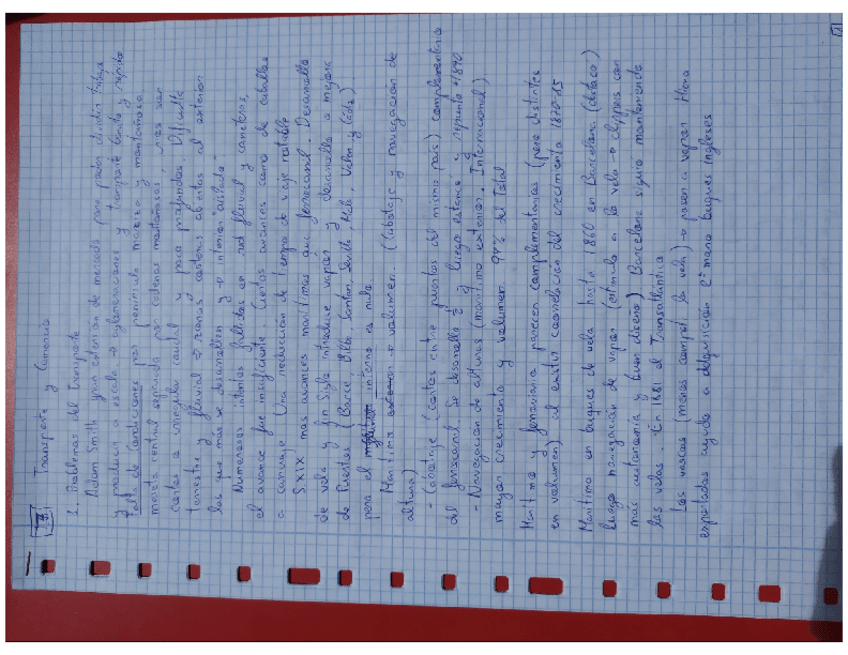 Transporte y Comercio
1. Problemas del Transporte
Adam Smith gran extensión de mercado para poder dividir trabajo
y producir a escala → aglomeraciones y transporte barato y rápido
Falta de condiciones por península maciza y montañosa
meseta central separada por cadenas montañosas, rios son
cortos e irregular caudal y poco profundos. Dificulta
terrestre y fluvial → zonas costeras abiertas al exterior
las que más se desarrollan y → interior "aislado"
Numerosos intentos fallidos en red fluvial y carreteras,
el avance fue insuficiente. Ciertos avances como de caballos
a carruaje. Una reducción de tiempo de viaje notable
S.XIX mas avances marítimos que ferrocarril. Desarrollo
de vela y fin siglo introduce vapor y desarrollo a mejora
de Puertos (Barce, Bilbo, Santan, Sevilla, Mala, Valen y Cádiz)
pero el interno es nulo
Marítima → volumen. (Cabotaje y navegación de
altura)
- Cabotaje (costas entre puertos del mismo país) complementario
del ferrocarril. Se desarrolla y luego estanca y repunta 1890
- Navegación de alturas (marítimo exterior. Internacional)
mayor crecimiento y volumen 94% del total
Marítimo y ferroviario parecen complementarios (pero distintos
en volumen) al existir correlación del crecimiento 1870-85
Marítimo en buques de vela hasta 1860 en Barcelona (destaca)
luego navegación de vapor (estímulo a la vela → clippers con
más autonomía y buen diseño) Barcelona siguio manteniendo
las velas. En 1881 el Transatlántica
Los vascos (menos compet la vela) → pasen a vapor. Hierro
exportador ayudo a adquisición 2ª mano buques Ingleses